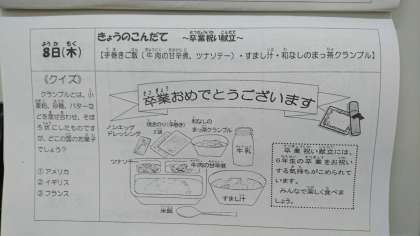 8日(木)
きょうのこんだて ～卒業祝い献立～
【手巻きご飯(牛肉の甘辛煮、ツナソテー)・すまし汁・和なしのまっ茶クランブル】
《クイズ》
クランブルとは、小
麦粉、砂糖、バターな
どを混ぜ合わせ、そぼ
ろ状にしたものです
が、どこの国のお菓子
でしょう？
①アメリカ
②イギリス
③フランス
卒業おめでとうございます
ノンエッグ
ドレッシング
焼きのり(手巻き)
2袋
和なしの
まっ茶クランブル
牛乳
ツナソテー
牛肉の甘辛煮
米飯
すまし汁
卒業祝い献立には、
6年生の卒業をお祝い
する気持ちがこめられて
います。
みんなで楽しく食べま
しょう。